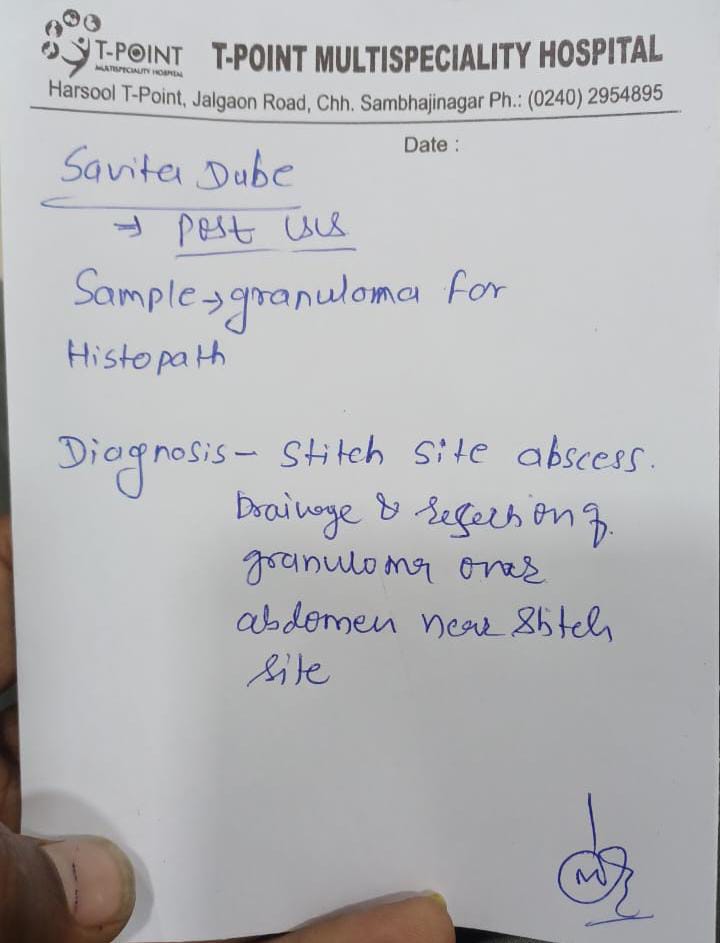 T-POINT
MULTISPECIALITY HOSPITAL
T-POINT MULTISPECIALITY HOSPITAL
Harsool T-Point, Jalgaon Road, Chh. Sambhajinagar Ph.: (0240) 2954895
Date :
Savita Dube
→ Post
Sample → granuloma for
Histopath
Diagnosis - Stitch site abscess.
Drainage &
granuloma over
abdomen near Stitch
site